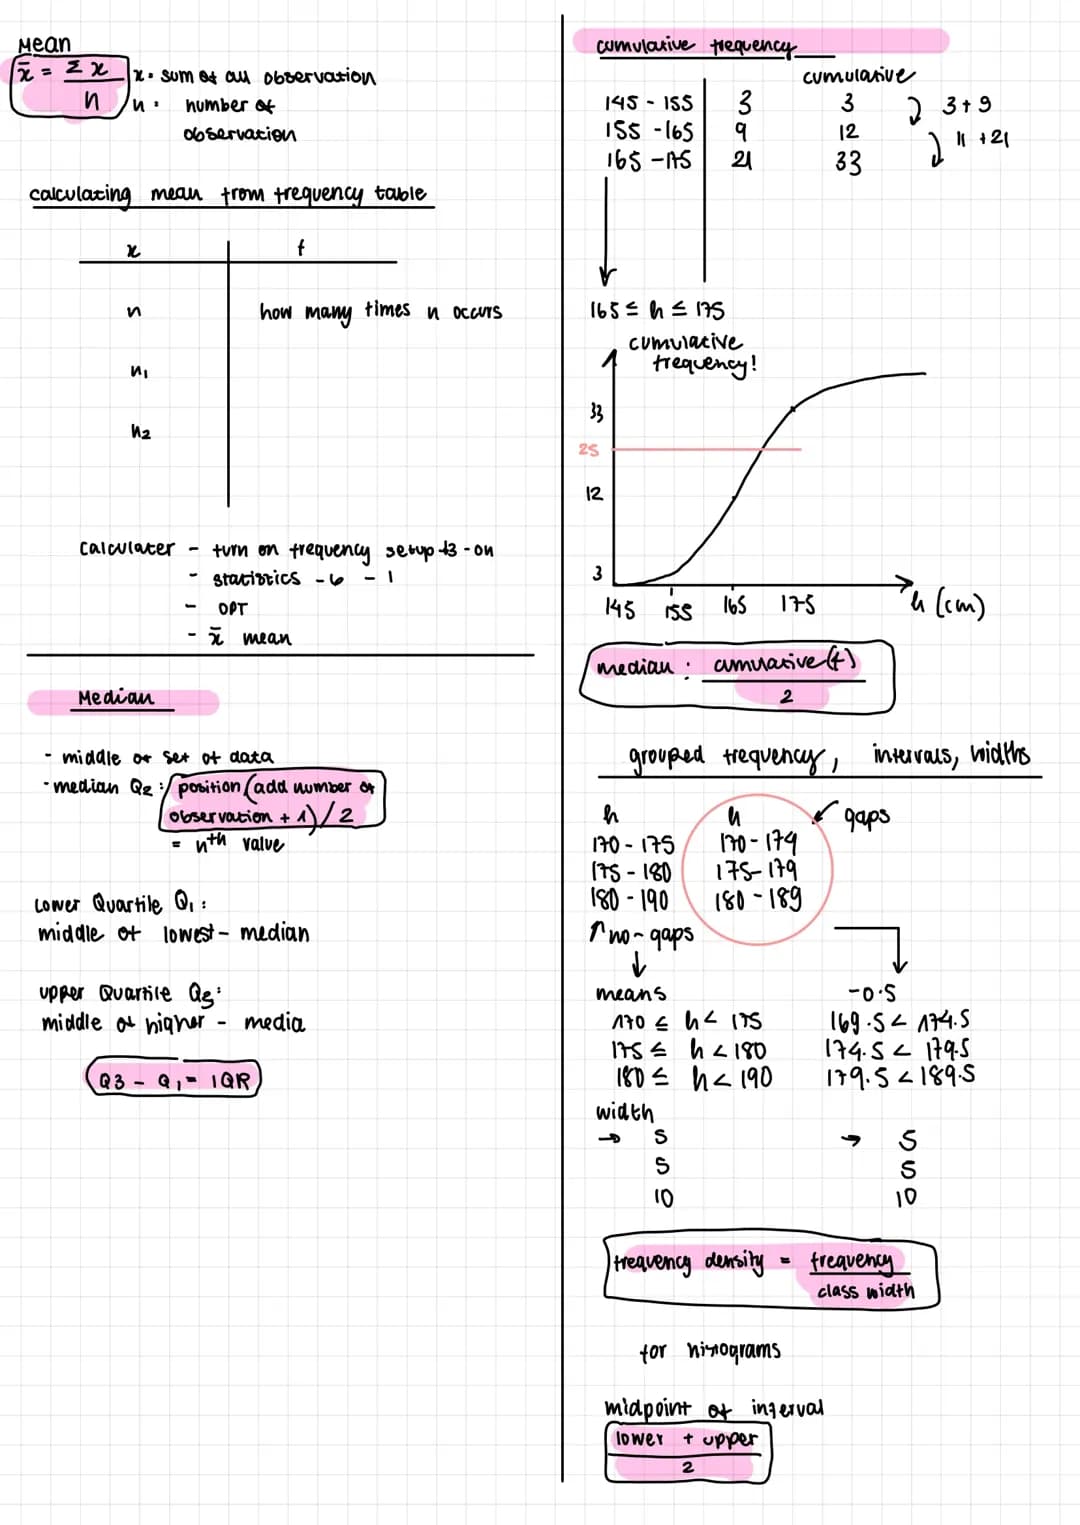 Mean
x̄ = Σx / n
x = sum of all observation
n = number of
observation
calculating mean from frequency table
x f
n how many times n occurs
n₁
n₂
calculater - turn on frequency setup ↓3 - on
- statistics - 6 - 1
- OPT
- x̄ mean
Median
- middle of set of data
- median Q₂ : position (add number of
observation + 1) / 2
= nth value
Lower Quartile Q₁ :
middle of lowest - median
upper Quartile Q₃ :
middle of higher - media
Q3 - Q₁ = IQR
cumulative frequency
cumulative
145 - 155 3 3 3 + 9
155 - 165 9 12 11 + 21
165 - 175 21 33
165 ≤ h ≤ 175
cumulative
frequency!
33
25
12
3
145 155 165 175 h (cm)
median : cumulative (f) / 2
grouped frequency, intervals, widths
h h gaps
170 - 175 170 - 174
175 - 180 175 - 179
180 - 190 180 - 189
↑ no - gaps
means -0.5
170 ≤ h < 175 169.5 < 174.5
175 ≤ h < 180 174.5 < 179.5
180 ≤ h < 190 179.5 < 189.5
width
→ 5 → 5
5 5
10 10
frequency density = frequency / class width
for histograms
midpoint of interval
lower + upper / 2